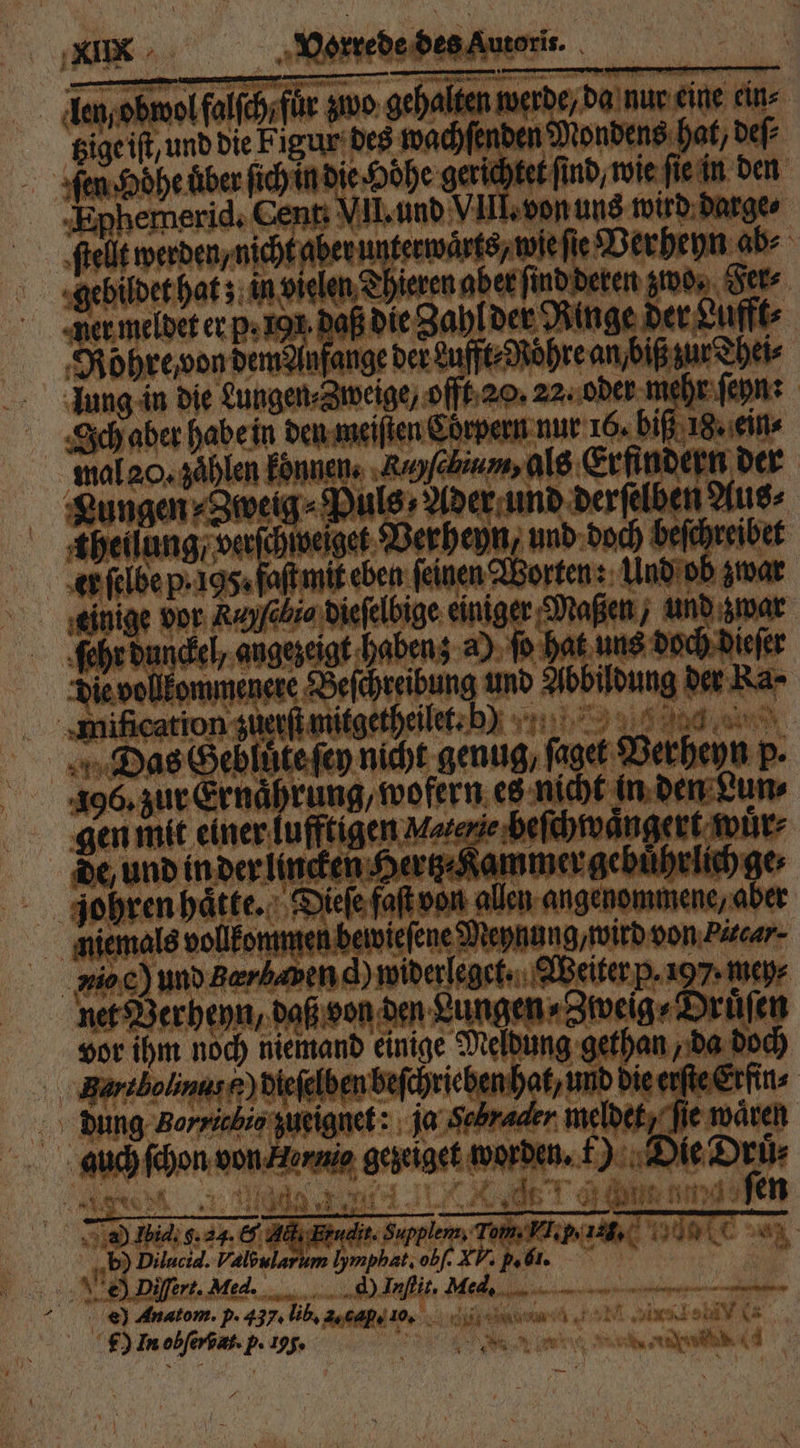 XIIX Vorrede des Autoris.
len, obwol falſch, für zwo gehalten werde, da nur eine ein⸗
tzige iſt, und die Figur des wachſenden Mondens hat, deſ⸗
ſen Höhe über ſich in die Höhe gerichtet ſind, wie ſie in den
Ephemerid. Cent. VII. und VIII. von uns wird darge⸗
ſtellt werden, nicht aber unterwärts, wie ſie Verheyn ab⸗
gebildet hat; in vielen Thieren aber ſind deren zwo. Fer⸗
ner meldet er p. 191. daß die Zahl der Ringe der Lufft⸗
Röhre, von dem Anfange der Lufft⸗Röhre an, biß zur Thei⸗
lung in die Lungen⸗Zweige, offt 20. 22. oder mehr ſeyn:
Ich aber habe in den meiſten Cörpern nur 16. biß 18. ein⸗
mal 20. zählen können. Ruyſchium, als Erfindern der
Lungen⸗Zweig⸗Puls⸗Ader und derſelben Aus⸗
theilung, verſchweiget Verheyn, und doch beſchreibet
er ſelbe p. 195. faſt mit eben ſeinen Worten: Und ob zwar
einige vor Ruyſchio dieſelbige einiger Maßen, und zwar
ſehr dunckel, angezeigt haben; a) ſo hat uns doch dieſer
die vollkommenere Beſchreibung und Abbildung der Ra-
mification zuerſt mitgetheilet. b)
Das Geblüte ſey nicht genug, ſaget Verheyn p.
196. zur Ernährung, wofern es nicht in den Lun⸗
gen mit einer lufftigen Materie beſchwängert wür⸗
de, und in der lincken Hertz⸗Kammer gebührlich ge⸗
johren hätte. Dieſe faſt von allen angenommene, aber
niemals vollkommen bewieſene Meynung, wird von Pitcar-
nio c) und Bœrhaven d) widerleget. Weiter p. 197. mey⸗
net Verheyn, daß von den Lungen⸗Zweig⸗Drüſen
vor ihm noch niemand einige Meldung gethan, da doch
Bartholinus e) dieſelben beſchrieben hat, und die erſte Erfin⸗
dung Borrichio zueignet: ja Schrader meldet, ſie wären
auch ſchon von Hornio gezeiget worden. f) Die Drü⸗
ſen
a) Ibid. §. 24. & Act. Erudit. Supplem. Tom. VI. p. 128.
b) Dilucid. Valvularum lymphat. obſ. XV. p. 61.
c) Diſſert. Med. d) Inſtit. Med.
e) Anatom. p. 437. lib. 2. cap. 10.
f) In obſervat. p. 195.